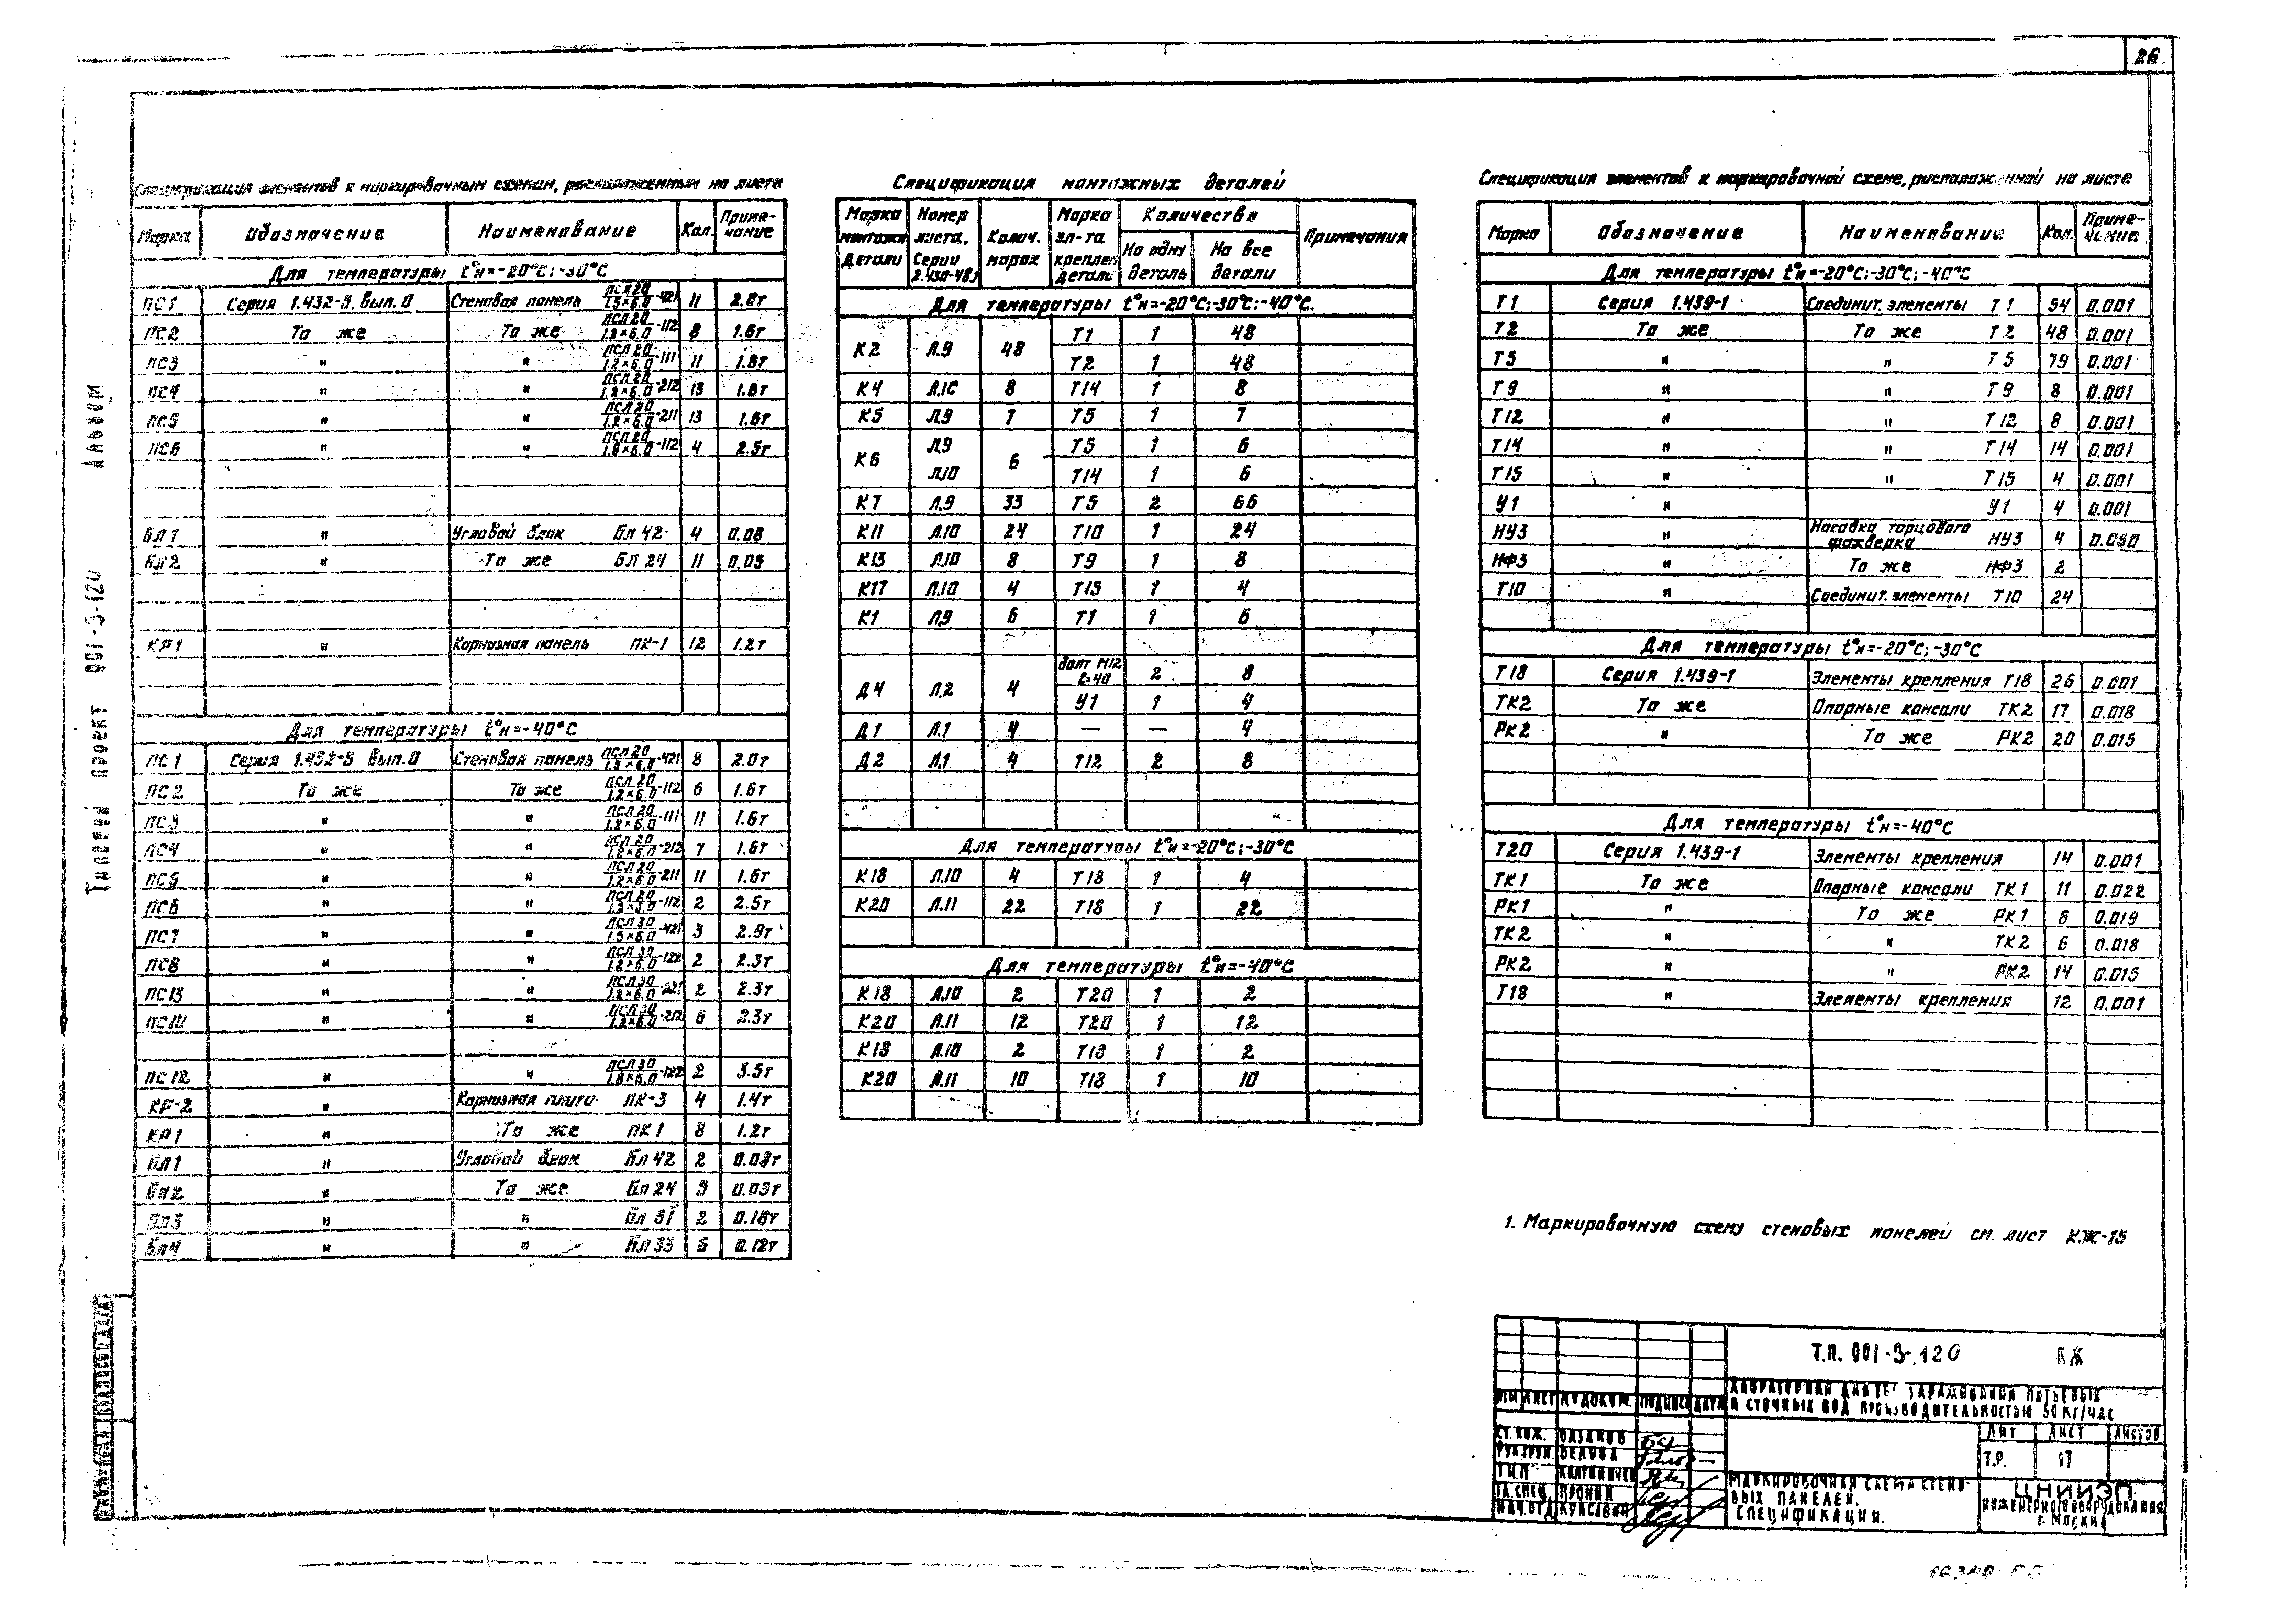 26
Спецификация элементов к маркировочным схемам, расположенным на листе
Марка Обозначение Наименование Кол. Приме-чание
Для температуры t°н=-20°С;-30°С
ПС1 Серия 1.432-5, вып. 0 Стеновая панель ПСЛ20 1.5×6.0 -421 11 2.0т
ПС2 То же То же ПСЛ20 1.2×6.0 -112 8 1.6т
ПС3 " " ПСЛ20 1.2×6.0 -111 11 1.6т
ПС4 " " ПСЛ20 1.2×6.0 -212 13 1.6т
ПС5 " " ПСЛ20 1.2×6.0 -211 13 1.6т
ПС6 " " ПСЛ20 1.8×6.0 -112 4 2.5т
БЛ1 " Угловой блок Бл 42 4 0.08
БЛ2 " То же Бл 24 11 0.05
КР1 " Карнизная панель ПК-1 12 1.2т
Для температуры t°н=-40°С
ПС1 Серия 1.432-5 Вып. 0 Стеновая панель ПСЛ20 1.5×6.0 -421 8 2.0т
ПС2 То же То же ПСЛ 20 1.2×6.0 -112 6 1.6т
ПС3 " " ПСЛ20 1.2×6.0 -111 11 1.6т
ПС4 " " ПСЛ20 1.2×6.0 -212 7 1.6т
ПС5 " " ПСЛ20 1.2×6.0 -211 11 1.6т
ПС6 " " ПСЛ20 -112 2 2.5т
ПС7 " " ПСЛ30 1.5×6.0 -421 3 2.9т
ПС8 " " ПСЛ30 1.2×6.0 -122 2 2.3т
ПС13 " " ПСЛ30 1.2×6.0 2 2.3т
ПС10 " " ПСЛ30 1.2×6.0 -212 6 2.3т
ПС12 " " ПСЛ30 1.8×6.0 -122 2 3.5т
КР-2 " Карнизная плита ПК-3 4 1.4т
КР1 " То же ПК1 8 1.2т
Бл1 " Угловой блок Бл 42 2 0.08т
Бл2 " То же Бл 24 9 0.05т
Бл3 " " Бл 51 2 0.18т
Бл4 " " Бл 33 5 0.12т
Спецификация монтажных деталей
Марка монтажн. детали Номер листа, Серии 2.430-4в.1 Колич. марок Марка эл-та креплен. детали Количество На одну деталь На все детали Примечания
Для температуры t°н=-20°С;-30°С;-40°С.
К2 Л.9 48 Т1 1 48
Т2 1 48
К4 Л.10 8 Т14 1 8
К5 Л.9 7 Т5 1 7
К6 Л.9 6 Т5 1 6
Л.10 Т14 1 6
К7 Л.9 33 Т5 2 66
К11 Л.10 24 Т10 1 24
К13 Л.10 8 Т9 1 8
К17 Л.10 4 Т15 1 4
К1 Л.9 6 Т1 1 6
Д4 Л.2 4 болт М12 ℓ=40 2 8
У1 1 4
Д1 Л.1 4 — — 4
Д2 Л.1 4 Т12 2 8
Для температуры t°н=-20°С;-30°С
К18 Л.10 4 Т18 1 4
К20 Л.11 22 Т18 1 22
Для температуры t°н=-40°С
К18 Л.10 2 Т20 1 2
К20 Л.11 12 Т20 1 12
К18 Л.10 2 Т18 1 2
К20 Л.11 10 Т18 1 10
Спецификация элементов к маркировочной схеме, расположенной на листе
Марка Обозначение Наименование Кол. Приме-чание
Для температуры t°н=-20°С;-30°С;-40°С
Т1 Серия 1.439-1 Соединит. элементы Т1 54 0.001
Т2 То же То же Т2 48 0.001
Т5 " " Т5 79 0.001
Т9 " " Т9 8 0.001
Т12 " " Т12 8 0.001
Т14 " " Т14 14 0.001
Т15 " " Т15 4 0.001
У1 " У1 4 0.001
НУ3 " Насадка торцового фахверка НУ3 4 0.030
НФ3 " То же НФ3 2
Т10 " Соединит. элементы Т10 24
Для температуры t°н=-20°С;-30°С
Т18 Серия 1.439-1 Элементы крепления Т18 26 0.001
ТК2 То же Опорные консоли ТК2 17 0.018
РК2 " То же РК2 20 0.015
Для температуры t°н=-40°С
Т20 Серия 1.439-1 Элементы крепления 14 0.001
ТК1 То же Опорные консоли ТК1 11 0.022
РК1 " То же РК1 6 0.019
ТК2 " " ТК2 6 0.018
РК2 " " РК2 14 0.015
Т18 " Элементы крепления 12 0.001
1. Маркировочную схему стеновых панелей см. лист КЖ-15
Типовой проект 901-3-120 Альбом
Т.П. 901-3-120 КЖ
ХЛОРАТОРНАЯ ДЛЯ ОБЕЗЗАРАЖИВАНИЯ ПИТЬЕВЫХ
И СТОЧНЫХ ВОД ПРОИЗВОДИТЕЛЬНОСТЬЮ 50 КГ/ЧАС
ЛИСТ № ДОКУМ. ПОДПИСЬ ДАТА
СТ. ИНЖ. БАЗАНОВ
РУК.ГРУП. БЕЛОВА
Г.И.П
ГЛ.СПЕЦ. ПРОНИН
НАЧ.ОТД КРАСАВИН
МАРКИРОВОЧНАЯ СХЕМА СТЕНО-
ВЫХ ПАНЕЛЕЙ.
СПЕЦИФИКАЦИИ.
ЛИТ ЛИСТ ЛИСТОВ
Т.Р. 17
ЦНИИЭП
ИНЖЕНЕРНОГО ОБОРУДОВАНИЯ
г. МОСКВА